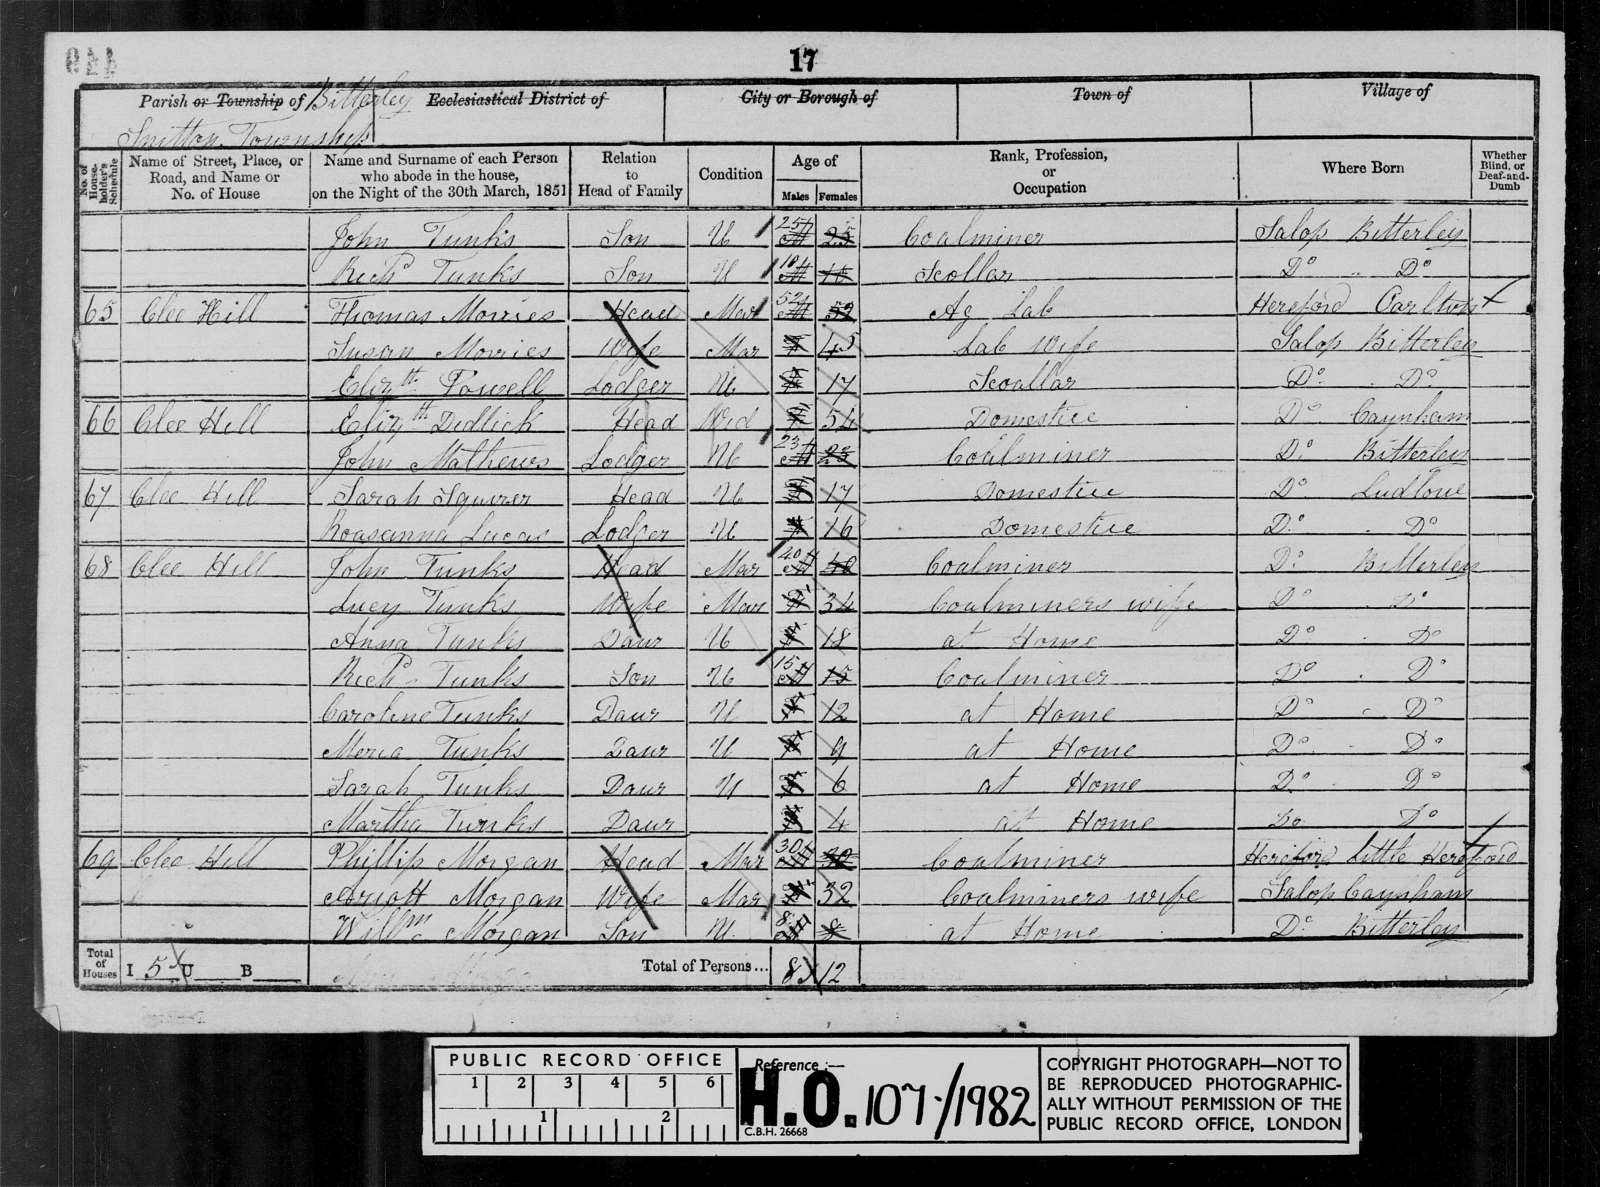 17
Parish or Township of Bitterley
Ecclesiastical District of
City or Borough of
Town of
Village of
Snitton Township
No. of House-holder's Schedule
Name of Street, Place, or Road, and Name or No. of House
Name and Surname of each Person who abode in the house, on the Night of the 30th March, 1851
Relation to Head of Family
Condition
Age of
Males Females
Rank, Profession, or Occupation
Where Born
Whether Blind, or Deaf-and-Dumb
John Tunks Son U 25 Coalminer Salop Bitterley
Richd Tunks Son U 10 Scollar Do Do
65 Clee Hill Thomas Morries Head Mar 52 Ag Lab Hereford Carlton
Susan Morries Wife Mar 45 Lab Wife Salop Bitterley
Elizth Powell Lodger U 17 Scoallar Do Do
66 Clee Hill Elizth Dedlick Head Wid 54 Domestice Do Caynham
John Mathews Lodger U 23 Coalminer Do Bitterley
67 Clee Hill Sarah Squirer Head U 17 Domestice Do Ludlow
Roasanna Lucas Lodger U 16 Domestice Do Do
68 Clee Hill John Tunks Head Mar 40 Coalminer Do Bitterley
Lucy Tunks Wife Mar 34 Coalminers wife Do Do
Anna Tunks Daur U 18 at Home Do Do
Richd Tunks Son U 15 Coalminer Do Do
Caroline Tunks Daur U 12 at Home Do Do
Meria Tunks Daur U 9 at Home Do Do
Sarah Tunks Daur U 6 at Home Do Do
Martha Tunks Daur 4 at Home Do Do
69 Clee Hill Phillip Morgan Head Mar 30 Coalminer Hereford Little Hereford
Morgan Wife Mar 32 Coalminers wife Salop Caynham
Willm Morgan Son U 8 at Home Do Bitterley
Total of Houses I 5 U B Total of Persons... 8 12
PUBLIC RECORD OFFICE
1 2 3 4 5 6
1 2
Reference :—
H.O. 107/1982
C.B.H. 26668
COPYRIGHT PHOTOGRAPH—NOT TO
BE REPRODUCED PHOTOGRAPHIC-
ALLY WITHOUT PERMISSION OF THE
PUBLIC RECORD OFFICE, LONDON